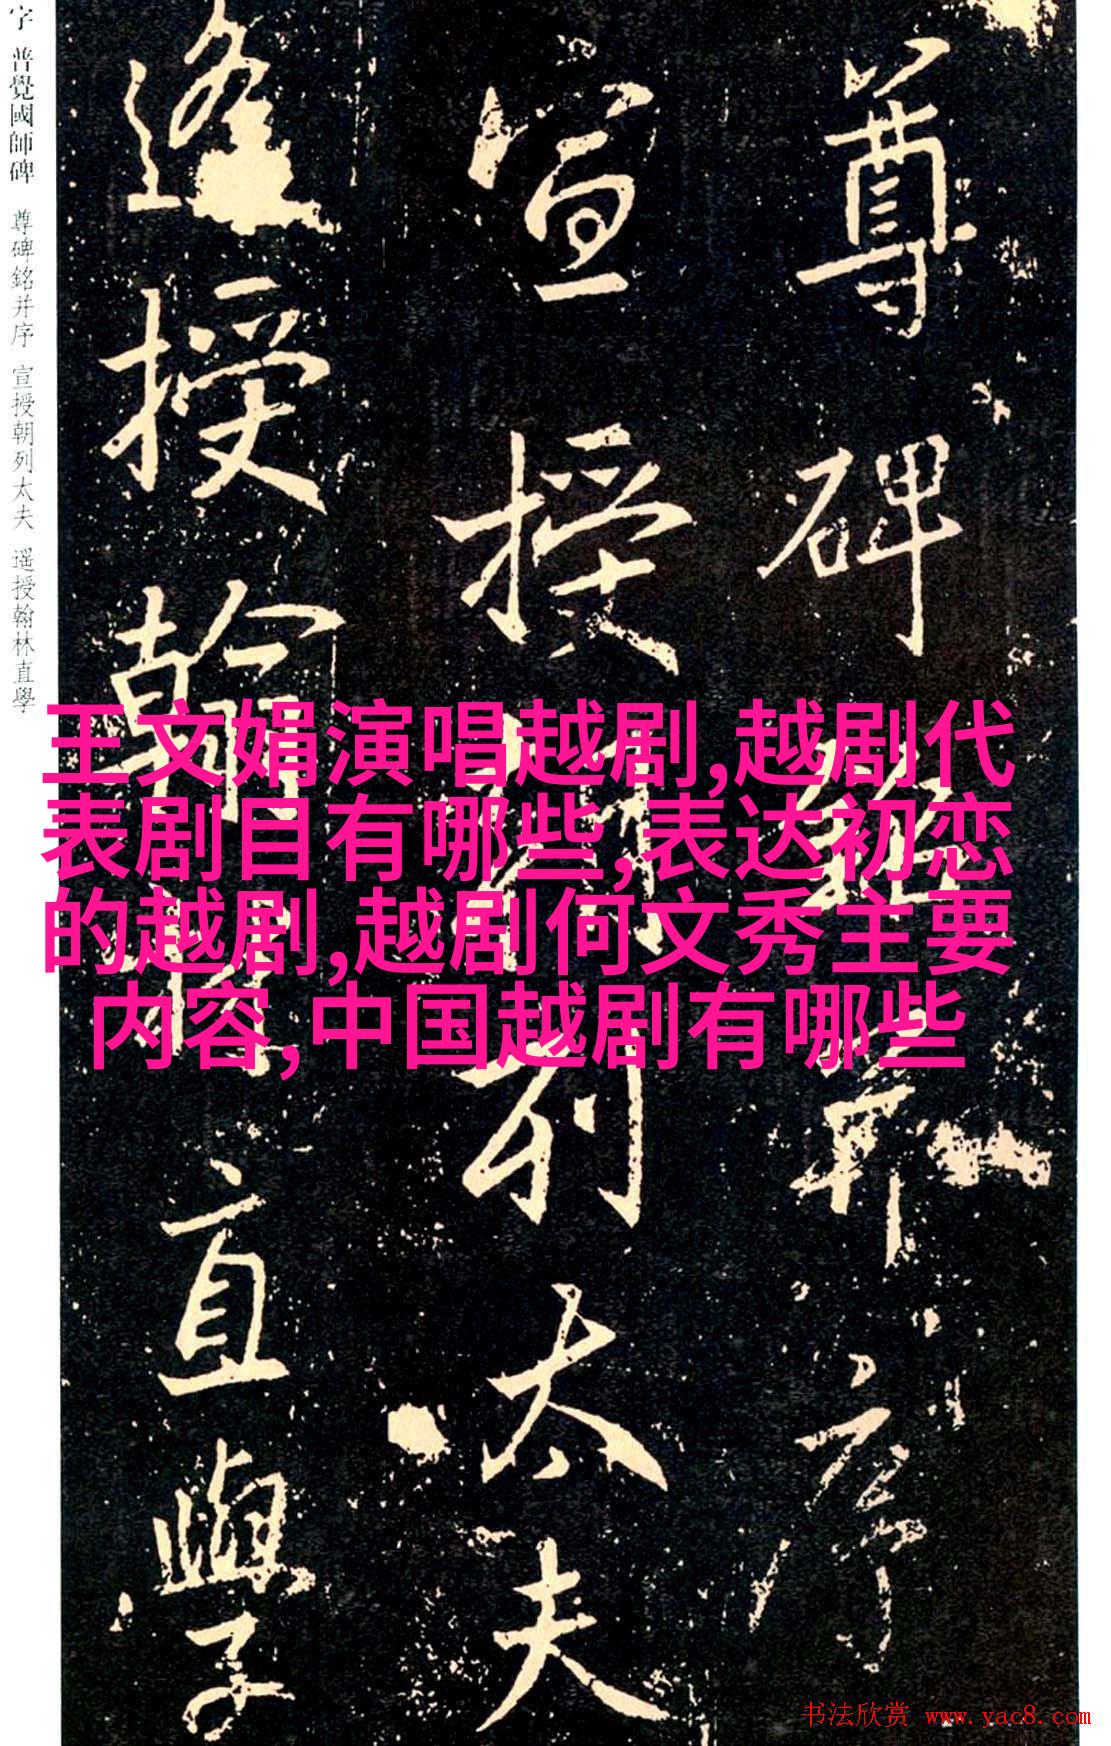 字 普覺國師碑 尊碑銘并序 宣授朝列太夫 遥授翰林直學
尊碑銘并序
宣授朝列太夫
遥授翰林直學
王文娟演唱越剧,越剧代
表剧目有哪些,表达初恋
的越剧,越剧何文秀主要
内容,中国越剧有哪些
书法欣赏 www.yac8.com